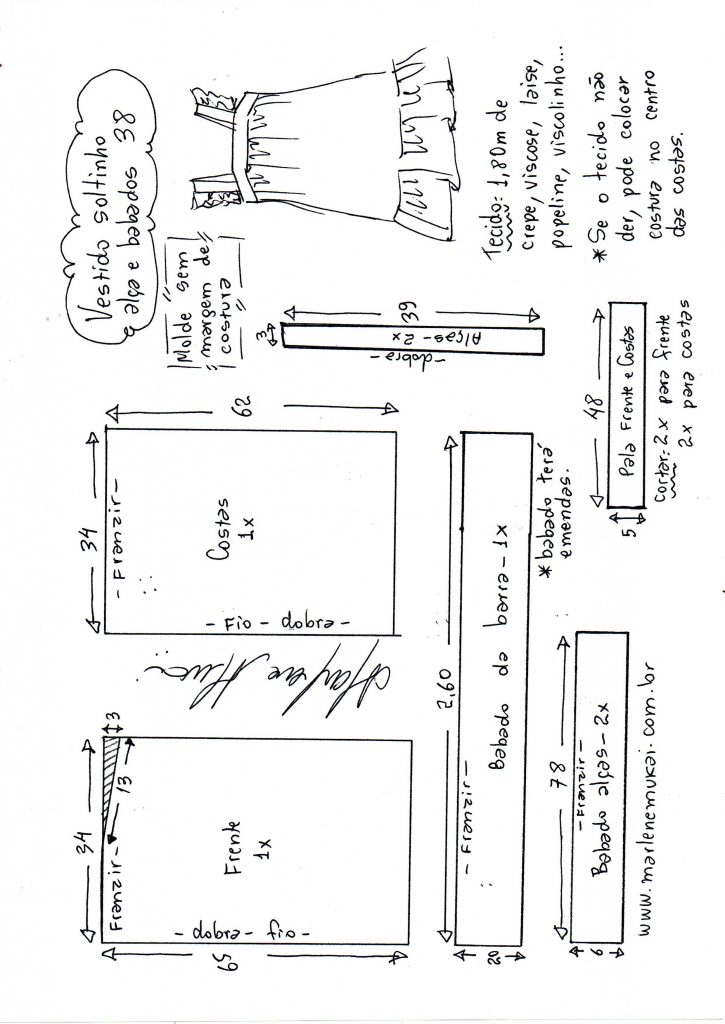 Vestido soltinho
alça e babados 38
Molde sem
margem de
costura
Tecido: 1,80m de
crepe, viscose, laise,
popeline, viscolinho...
* Se o tecido não
der, pode colocar
costura no centro
das costas.
34
3
- Franzir -
13
Frente
1x
- fio - dobra -
65
34
62
- Franzir -
Costas
1x
- Fio - dobra -
3
39
Alças - 2x
- dobra -
2,60
20
- Franzir -
Babado da barra - 1x
* babado terá
emendas.
48
5
Pala Frente e Costas
Cortar: 2x para frente
2x para costas
78
6
- Franzir -
Babado alças - 2x
www.marlenemukai.com.br